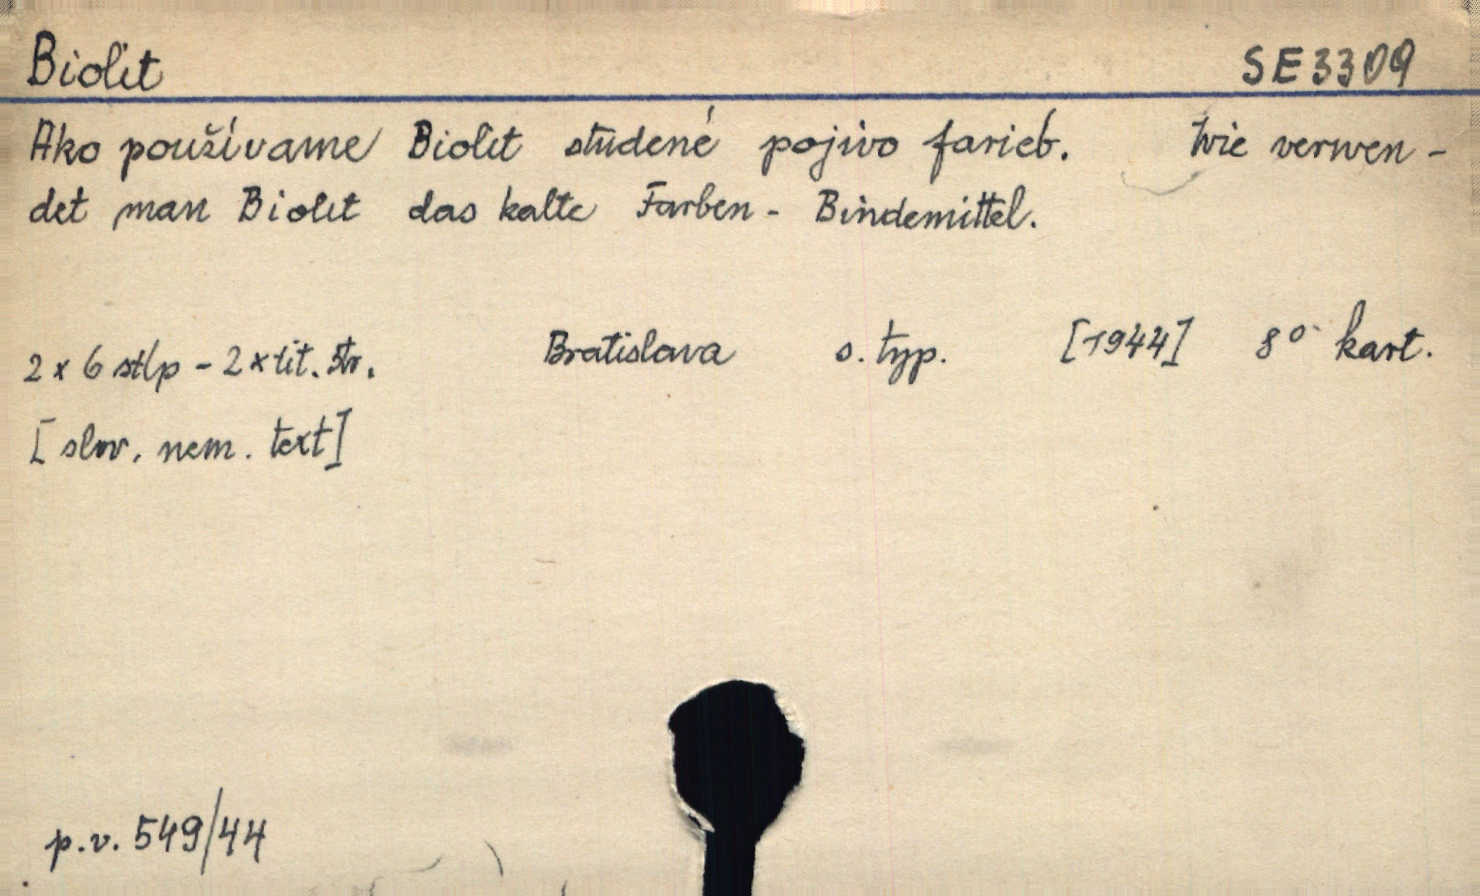 Biolit SE3309
Ako používame Biolit studené pojivo farieb. Wie verwen-
det man Biolit das kalte Farben-Bindemittel.
2 x 6 stlp - 2 x tit. str. Bratislava s. typ. [1944] 8° kart.
[slov. nem. text]
p.v. 549/44